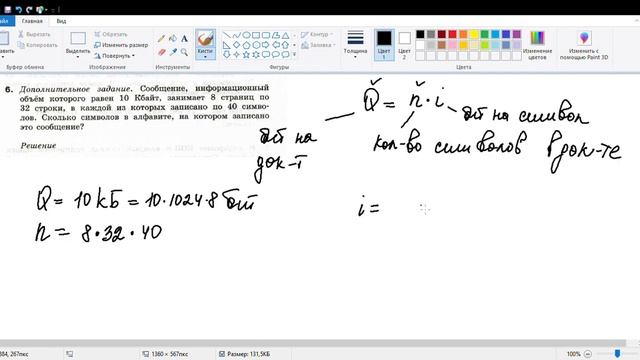 Файл
Главная
Вид
Обрезать
Изменить размер
Повернуть
Выделить
Кисти
Инструменты
Контур
Заливка
Фигуры
Толщина
Цвет 1
Цвет 2
Цвета
Изменение цветов
Изменить с помощью Paint 3D
6. Дополнительное задание. Сообщение, информационный
объём которого равен 10 Кбайт, занимает 8 страниц по
32 строки, в каждой из которых записано по 40 симво-
лов. Сколько символов в алфавите, на котором записано
это сообщение?
Решение
Q = n · i
бит на символ
бит на док-т
кол-во символов в док-те
Q = 10 кБ = 10·1024·8 бит
n = 8·32·40
i =
384, 267пкс
1360 × 567пкс
Размер: 131,5КБ
100%